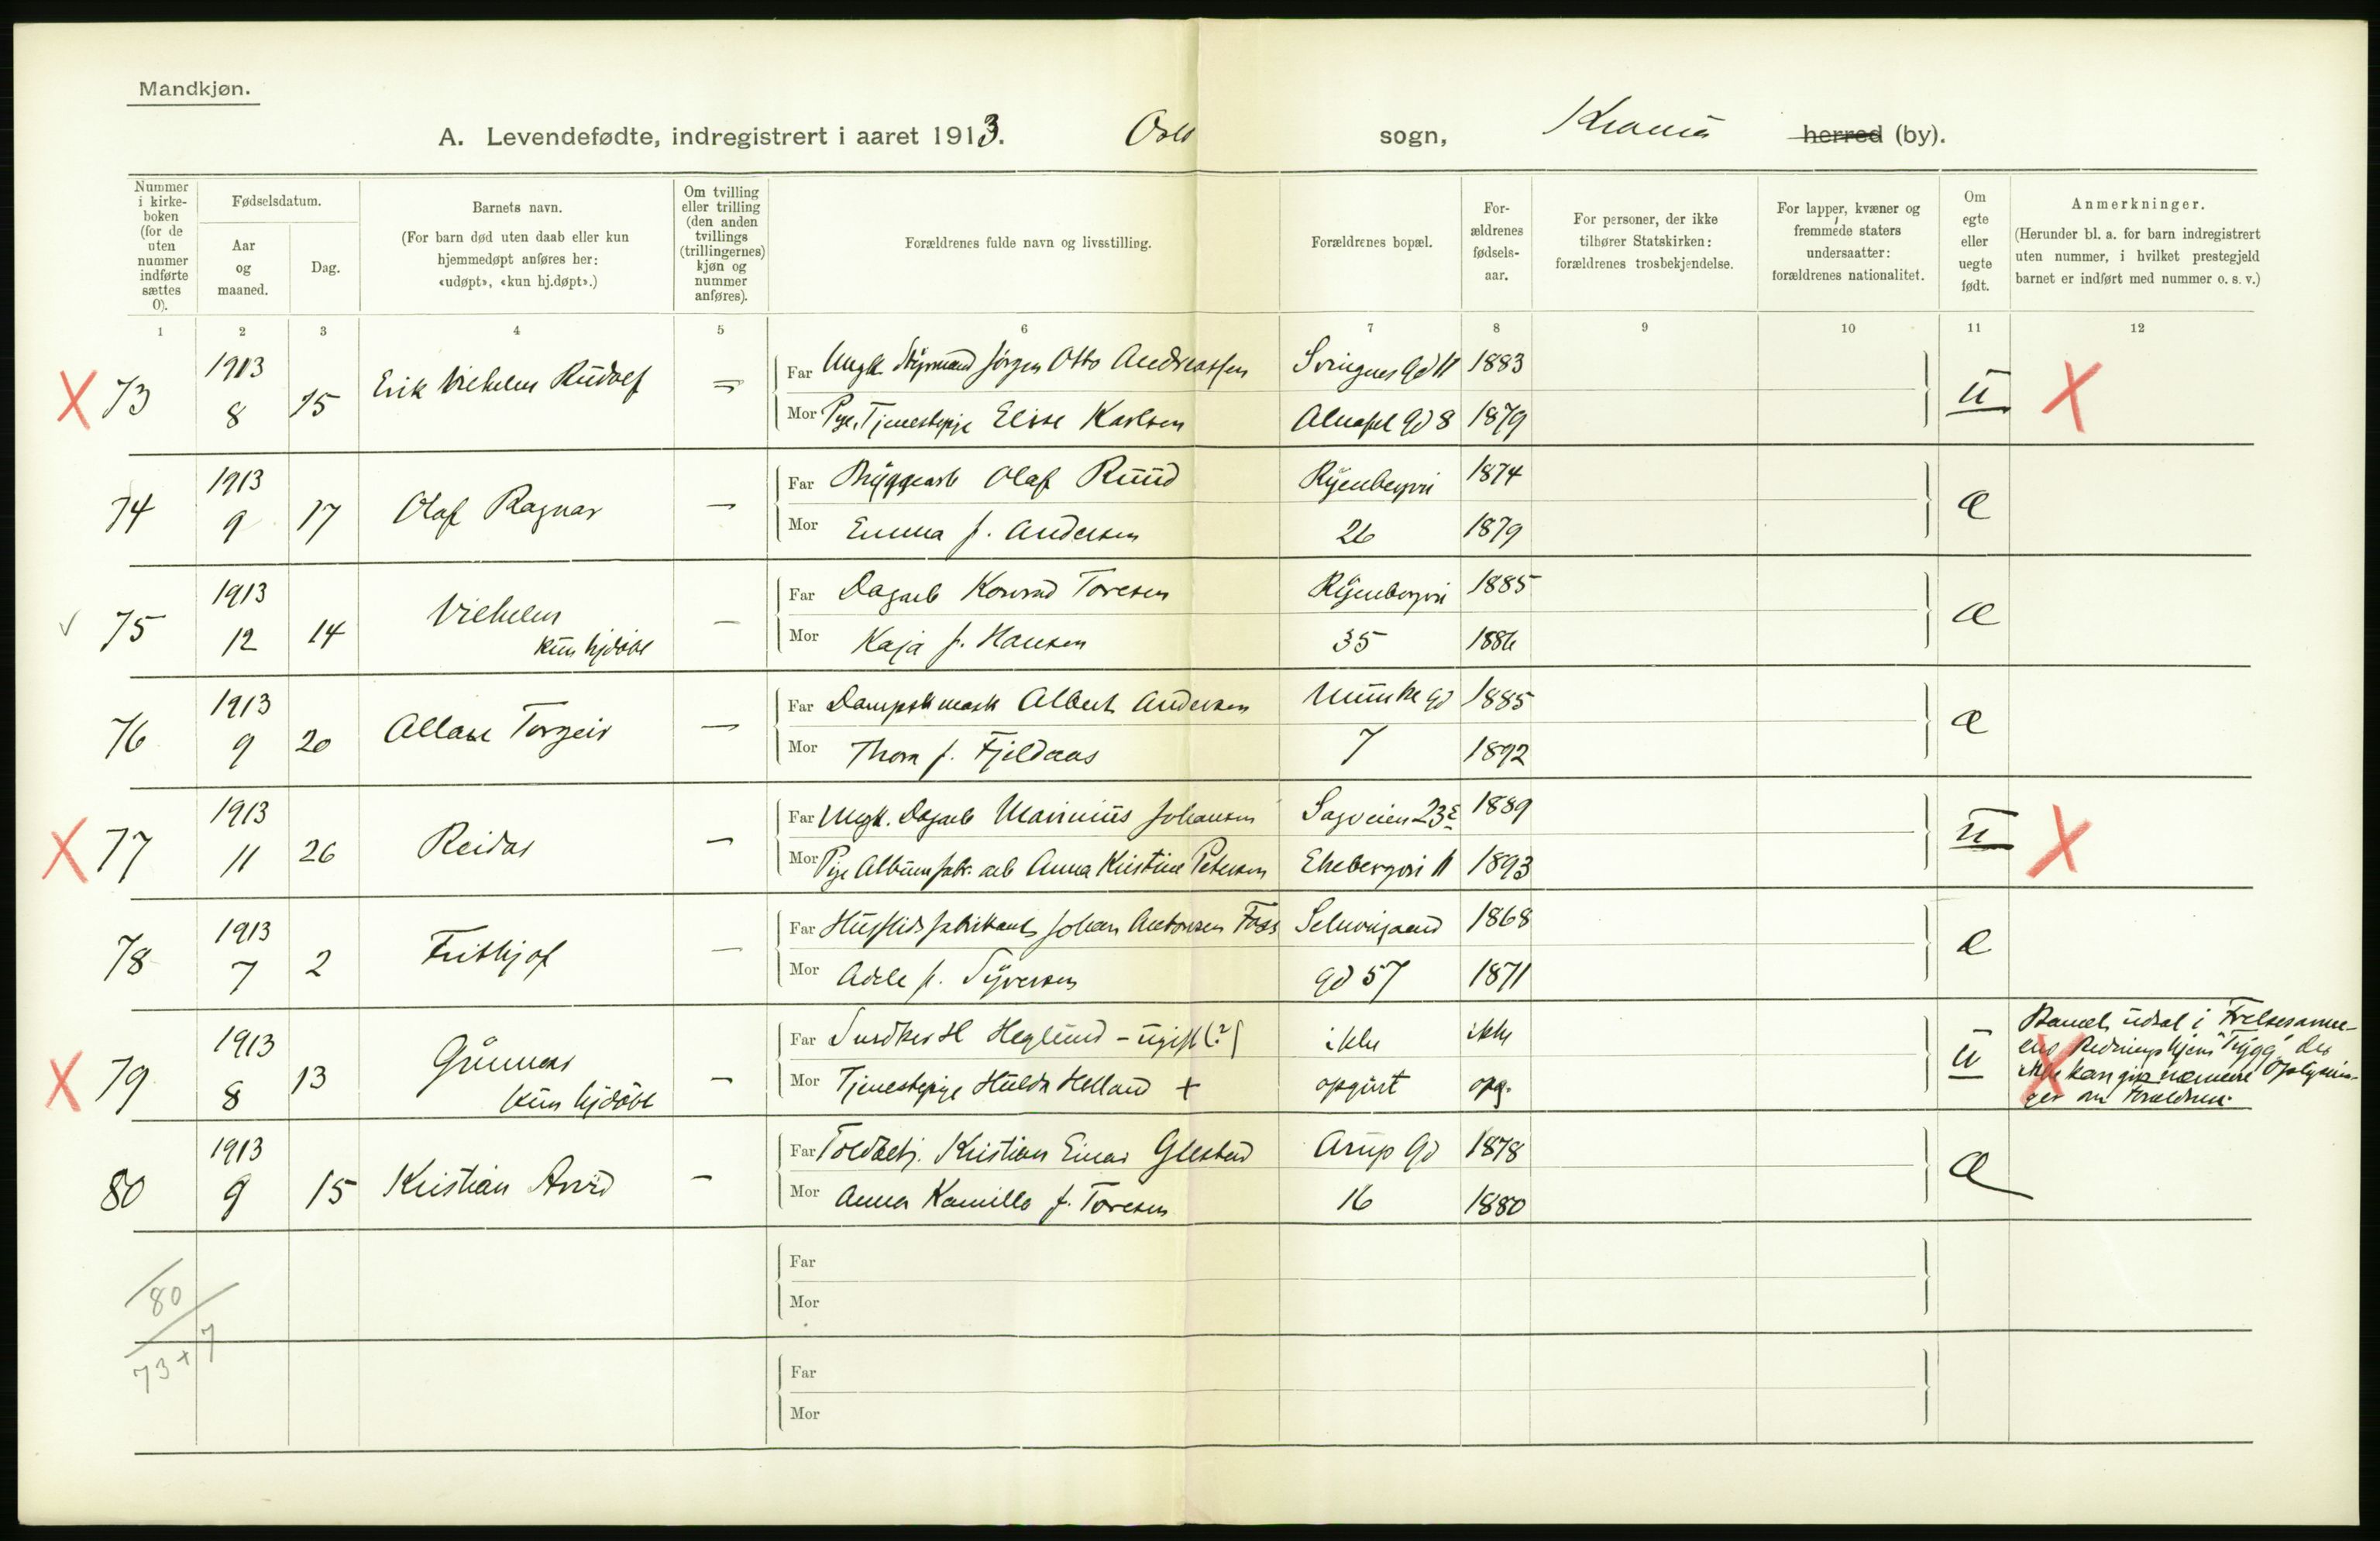 Mandkjøn.
A. Levendefødte, indregistrert i aaret 1913. Oslo sogn, Kr.ania herred (by).
Nummer i kirke-boken (for de uten nummer indførte sættes 0).
Fødselsdatum.
Aar og maaned.
Dag.
Barnets navn.
(For barn død uten daab eller kun hjemmedøpt anføres her: «udøpt», «kun hj.døpt».)
Om tvilling eller trilling (den anden tvillings (trillingernes) kjøn og nummer anføres).
Forældrenes fulde navn og livsstilling.
Forældrenes bopæl.
For-ældrenes fødsels-aar.
For personer, der ikke tilhører Statskirken: forældrenes trosbekjendelse.
For lapper, kvæner og fremmede staters undersaatter: forældrenes nationalitet.
Om egte eller uegte født.
Anmerkninger.
(Herunder bl. a. for barn indregistrert uten nummer, i hvilket prestegjeld barnet er indført med nummer o. s. v.)
1 2 3 4 5 6 7 8 9 10 11 12
X 73 1913 8 15 Erik Vilhelm Rudolf =
Far Ungk. Styrmand Jørgen Otto Andreassen Svingens Gd 11 1883
Mor Pge. Tjenestepige Elise Karlsen Alnafet Gd 8 1879
u X
74 1913 9 17 Olaf Ragnar —
Far Bryggearb Olaf Ruud Ryenbergvei 1874
Mor Emma f. Andersen 26 1879
æ
√ 75 1913 12 14 Vilhelm kun hjdøbt —
Far Dagarb Konrad Toresen Ryenbergvei 1885
Mor Kaja f. Hansen 35 1886
æ
76 1913 9 20 Allan Torgeir —
Far Dampsk mask Albert Andersen Munke gd 1885
Mor Thora f. Fjeldaas 7 1892
æ
X 77 1913 11 26 Reidar —
Far Ungk. Dagarb Marinius Johansen Sagveien 23 c 1889
Mor Pge Albumfabr. arb Anna Kristine Petersen Ekebergvei 11 1893
u X
78 1913 7 2 Frithjof —
Far Husflidsfabrikant Johan Antonsen Foss Schweigaard 1868
Mor Adele f. Syversen gd 57 1871
æ
X 79 1913 8 13 Gunnar kun hjdøbt —
Far Snedker H Heglund - ugift (?) ikke ikke
Mor Tjenestepige Hulda Helland + opgivt opg.
u X
Barnet udsat i Frelsesarme-
ens Redningshjem "Trygg" der
ikke kan gi nærmere Oplysnin-
ger om Forældrene.
80 1913 9 15 Kristian Arvid —
Far Toldbetj. Kristian Einar Glestad Arup Gd 1878
Mor Anna Kamilla f. Toresen 16 1880
æ
Far
Mor
80
73 + 7
Far
Mor